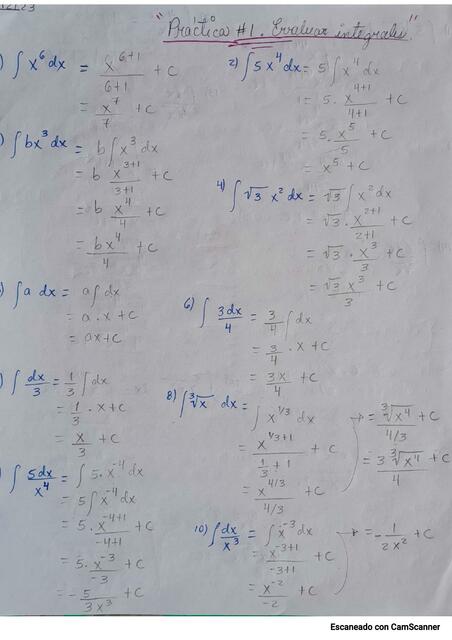 12/23
"Práctica #1. Evaluar integrales."
) ∫ x⁶ dx = x⁶⁺¹/6+1 + C
= x⁷/7 + C
2) ∫ 5x⁴ dx = 5 ∫ x⁴ dx
= 5 · x⁴⁺¹/4+1 + C
= 5 · x⁵/5 + C
= x⁵ + C
) ∫ bx³ dx = b ∫ x³ dx
= b x³⁺¹/3+1 + C
= b x⁴/4 + C
= bx⁴/4 + C
4) ∫ √3 x² dx = √3 ∫ x² dx
= √3 · x²⁺¹/2+1 + C
= √3 · x³/3 + C
= √3 x³/3 + C
) ∫ a dx = a ∫ dx
= a · x + C
= ax + C
6) ∫ 3dx/4 = 3/4 ∫ dx
= 3/4 · x + C
= 3x/4 + C
) ∫ dx/3 = 1/3 ∫ dx
= 1/3 · x + C
= x/3 + C
8) ∫ ∛x dx = ∫ x^1/3 dx
= x^1/3+1 / 1/3+1 + C
= x^4/3 / 4/3 + C
= ∛x⁴ / 4/3 + C
= 3 ∛x⁴ / 4 + C
) ∫ 5dx/x⁴ = ∫ 5 · x⁻⁴ dx
= 5 ∫ x⁻⁴ dx
= 5 · x⁻⁴⁺¹/-4+1 + C
= 5 · x⁻³/-3 + C
= - 5/3x³ + C
10) ∫ dx/x³ = ∫ x⁻³ dx
= x⁻³⁺¹/-3+1 + C
= x⁻²/-2 + C
= - 1/2x² + C
Escaneado con CamScanner